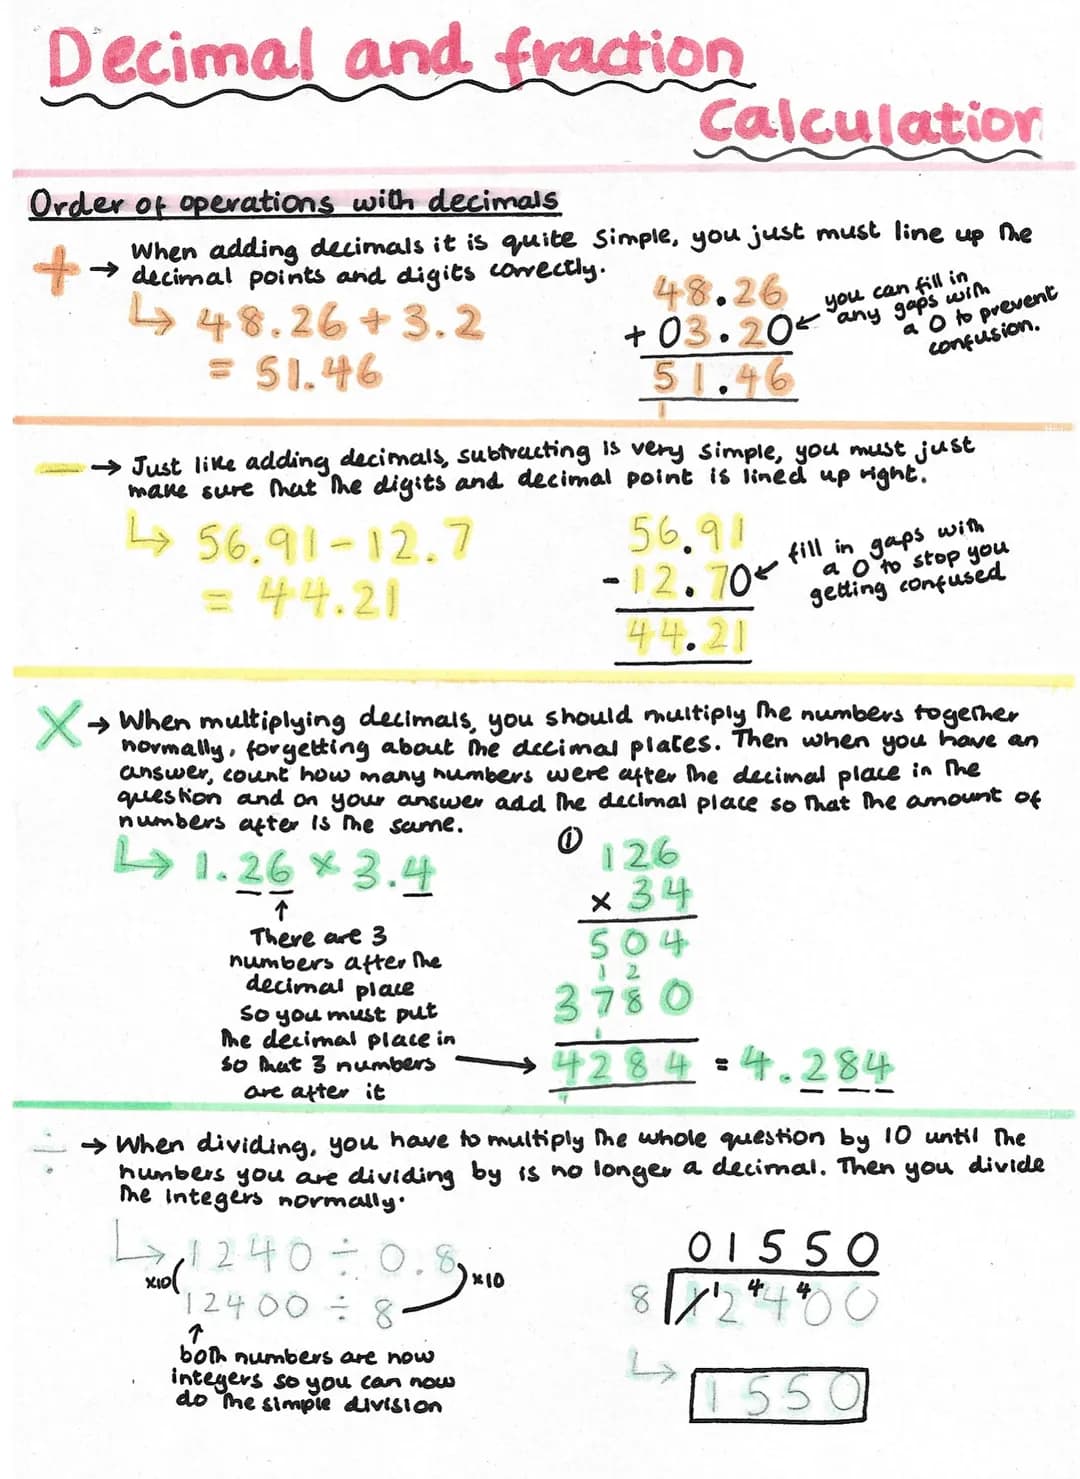 Decimal and fraction
Calculation
Order of operations with decimals
+ → When adding decimals it is quite simple, you just must line up the
decimal points and digits correctly.
↳ 48.26 + 3.2
= 51.46
48.26
+ 03.20
51.46
1
you can fill in
any gaps with
a 0 to prevent
confusion.
− → Just like adding decimals, subtracting is very simple, you must just
make sure that the digits and decimal point is lined up right.
↳ 56.91 - 12.7
= 44.21
56.91
- 12.70
44.21
fill in gaps with
a 0 to stop you
getting confused
× → When multiplying decimals, you should multiply the numbers together
normally, forgetting about the decimal places. Then when you have an
answer, count how many numbers were after the decimal place in the
question and on your answer add the decimal place so that the amount of
numbers after is the same.
↳ 1.26 × 3.4
↑
There are 3
numbers after the
decimal place
so you must put
the decimal place in
so that 3 numbers
are after it
①
126
× 34
504
1 2
3780
1
4284 = 4.284
1
÷ → When dividing, you have to multiply the whole question by 10 until the
numbers you are dividing by is no longer a decimal. Then you divide
the integers normally.
↳ 1240 ÷ 0.8
×10 ×10
12400 ÷ 8
↑
both numbers are now
integers so you can now
do the simple division
01550
8 1 ¹2 ⁴4 ⁴0 0
↳ 1550